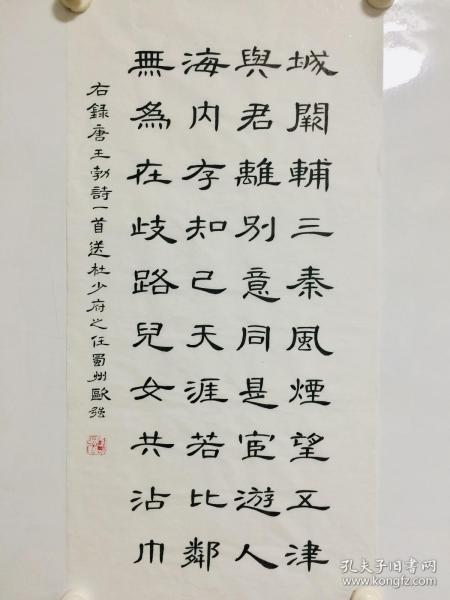 城闕輔三秦風煙望五津
與君離別意同是宦遊人
海内存知己天涯若比鄰
無為在歧路兒女共沾巾
右錄唐王勃詩一首送杜少府之任蜀州歐强
孔夫子旧书网
www.kongfz.com